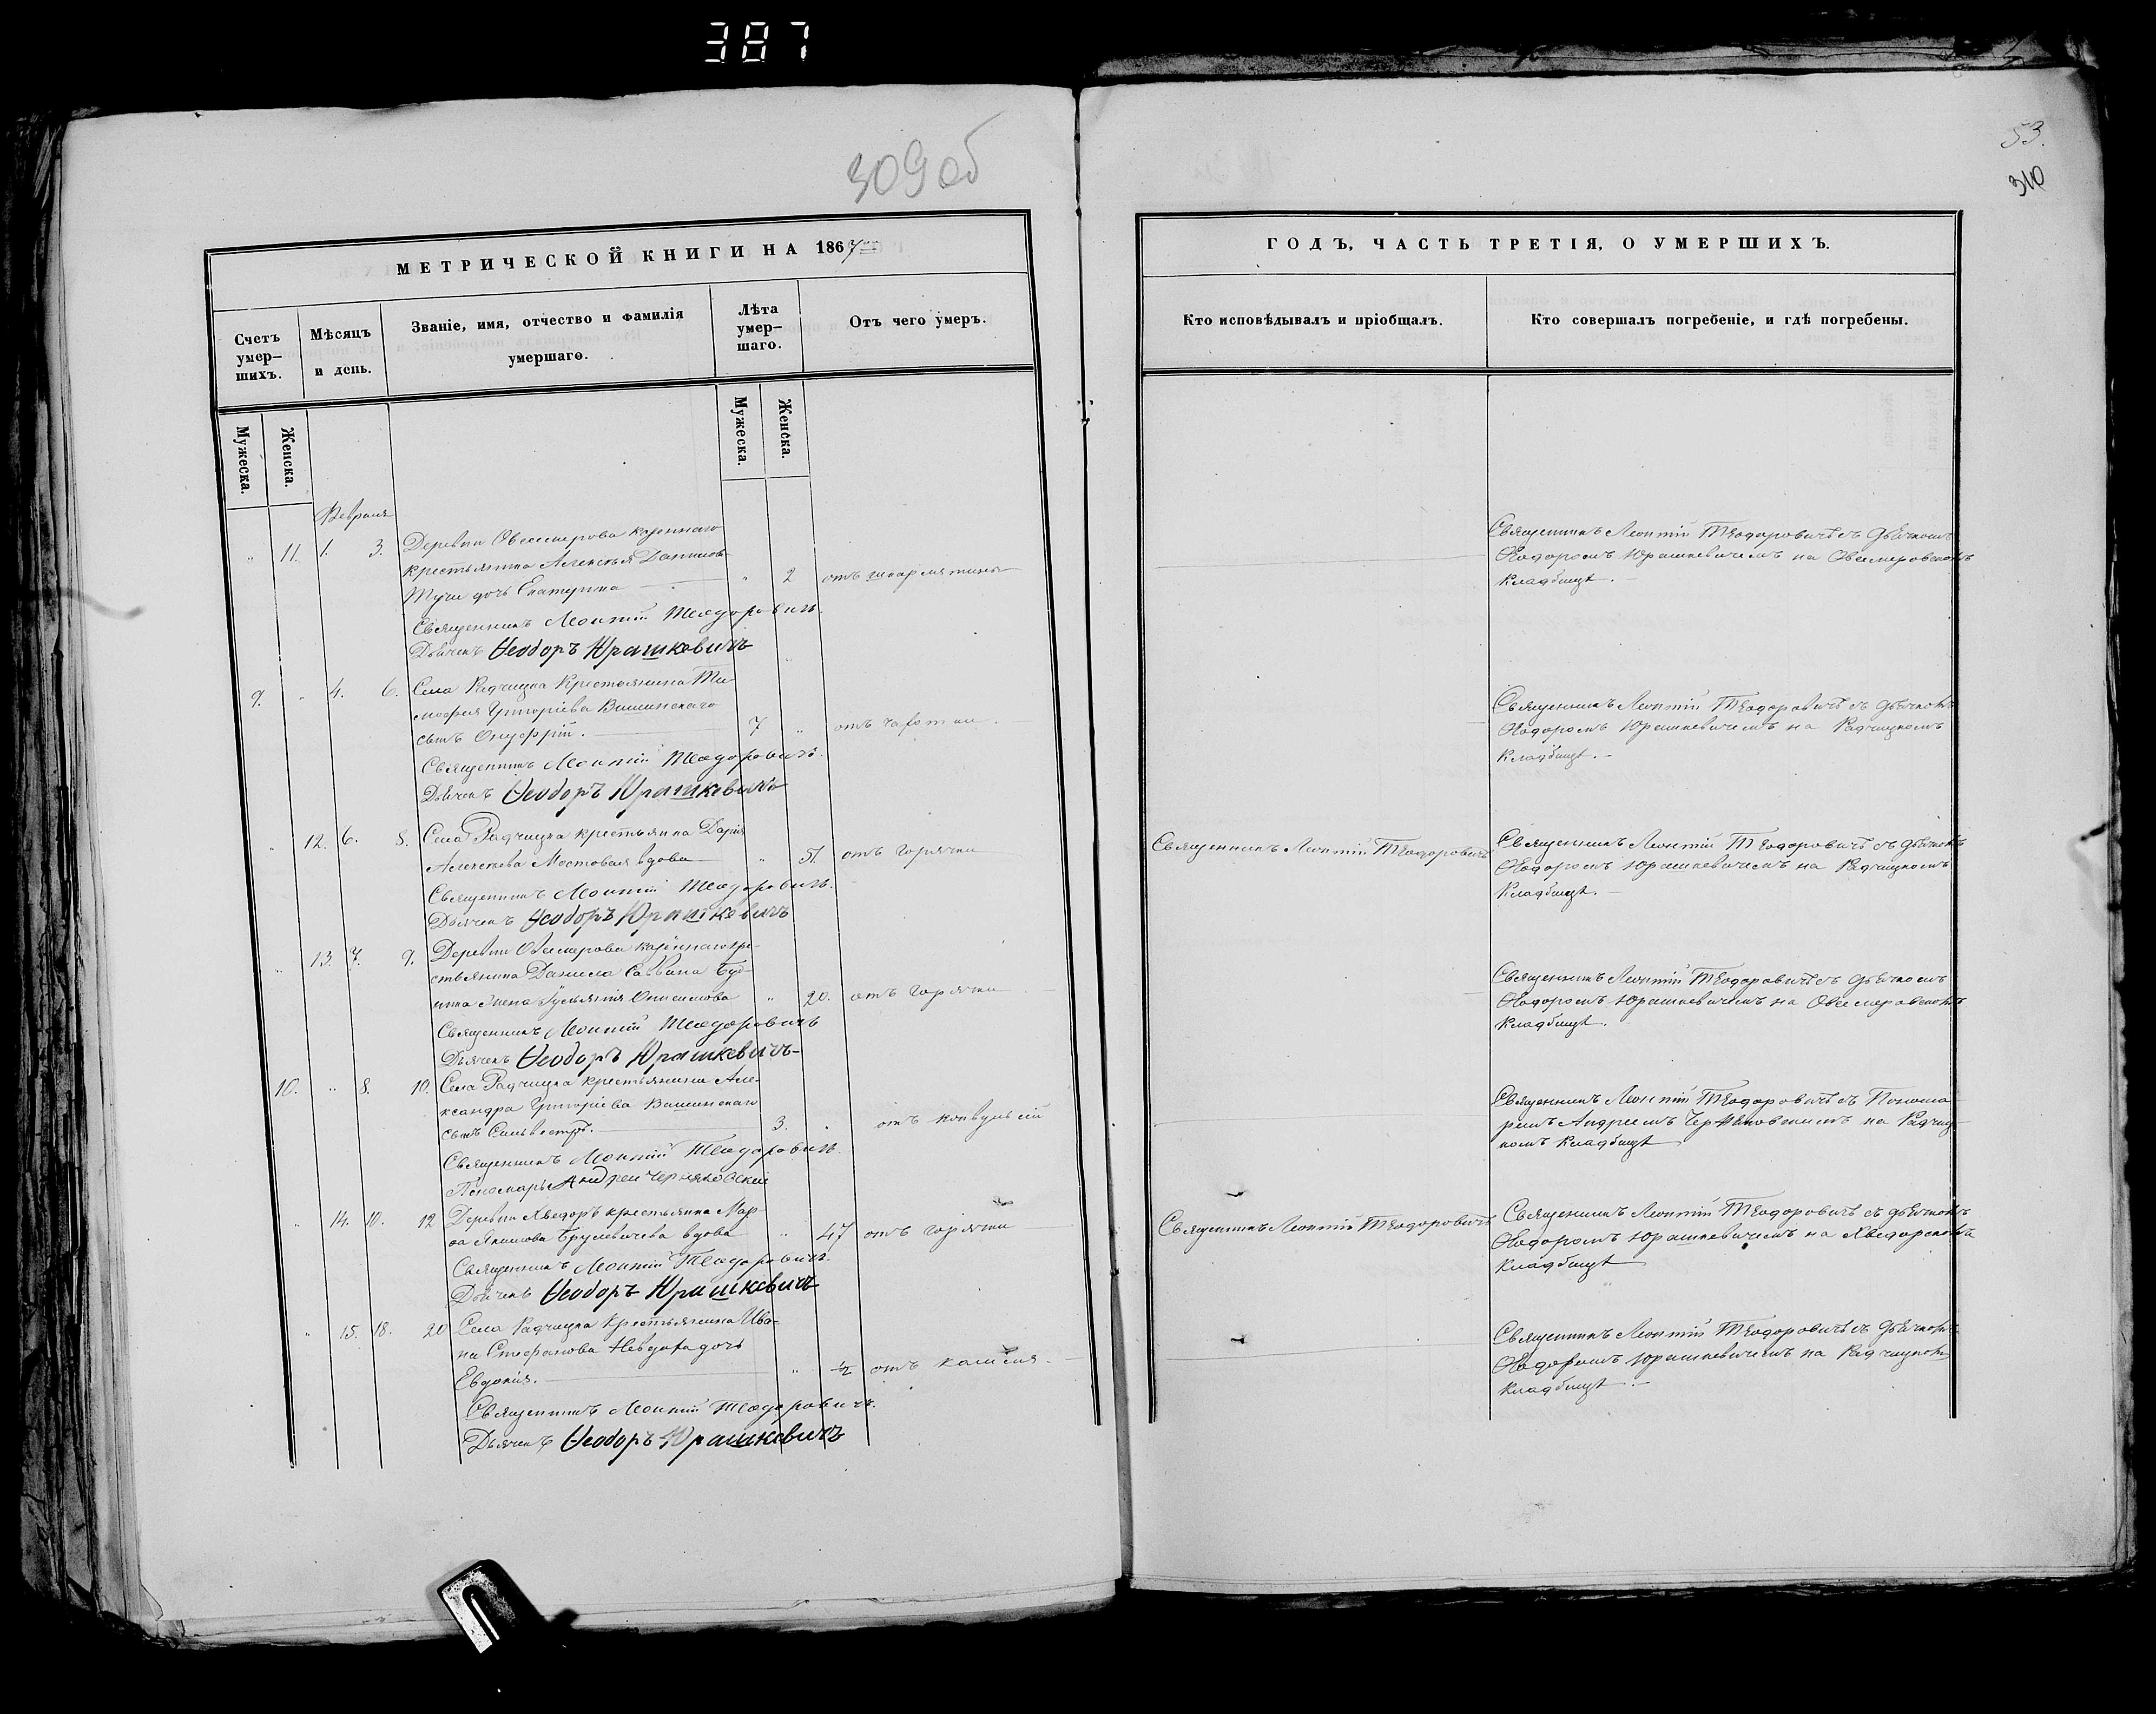 387
309 об
МЕТРИЧЕСКОЙ КНИГИ НА 1867
Счетъ умер-шихъ.
Мѣсяцъ и день.
Званіе, имя, отчество и фамилія умершаго.
Лѣта умер-шаго.
Отъ чего умеръ.
Мужеска.
Женска.
Мужеска.
Женска.
Февраля
" 11. 1. 3. Деревни Овсемирова казеннаго
крестьянина Алексѣя Данилова
дочь Екатерина " 2 отъ шкарлятины
Священникъ Леонтій Теодоровичъ.
Дьячекъ Ѳеодоръ Юрашкевичъ
9. " 4. 6. Села Радчицка Крестьянина Ти-
мофея Григоріева Вашинскаго
сынъ Онуфрій. 7 " отъ чахотки.
Священникъ Леонтій Теодоровичъ.
Дьячекъ Ѳеодоръ Юрашкевичъ
" 12. 6. 8. Села Радчицка крестьянка Дарія
Алексѣева Мостовая вдова " 51. отъ горячки
Священникъ Леонтій Теодоровичъ.
Дьячекъ Ѳеодоръ Юрашкевичъ
" 13. 7. 9. Деревни Овсемирова казеннаго кре-
стьянина Данила Саввина
жена Онисимова " 20. отъ горячки
Священникъ Леонтій Теодоровичъ
Дьячекъ Ѳеодоръ Юрашкевичъ
10. " 8. 10. Села Радчицка крестьянина Але-
ксандра Григоріева Вашинскаго
сынъ Сильвестръ. 3. " отъ конвульсій
Священникъ Леонтій Теодоровичъ.
Пономарь Андрей Черняковскій
" 14. 10. 12 Деревни Хведоръ крестьянка Мар-
ѳа Якимова Брулевичева вдова " 47 отъ горячки
Священникъ Леонтій Теодоровичъ.
Дьячекъ Ѳеодоръ Юрашкевичъ
" 15. 18. 20 Села Радчицка Крестьянина Ива-
на Стефанова дочь
Евдокія. " ½ отъ кашеля.
Священникъ Леонтій Теодоровичъ.
Дьячекъ Ѳеодоръ Юрашкевичъ
53.
310
ГОДЪ, ЧАСТЬ ТРЕТІЯ, О УМЕРШИХЪ.
Кто исповѣдывалъ и пріобщалъ.
Кто совершалъ погребеніе, и гдѣ погребены.
Священникъ Леонтій Теодоровичъ съ дьячкомъ
Ѳеодоромъ Юрашкевичемъ на Овсемировскомъ
кладбищѣ.
Священникъ Леонтій Теодоровичъ съ дьячкомъ
Ѳеодоромъ Юрашкевичемъ на Радчицкомъ
кладбищѣ.
Священникъ Леонтій Теодоровичъ
Священникъ Леонтій Теодоровичъ съ дьячкомъ
Ѳеодоромъ Юрашкевичемъ на Радчицкомъ
кладбищѣ.
Священникъ Леонтій Теодоровичъ съ дьячкомъ
Ѳеодоромъ Юрашкевичемъ на Овсемировскомъ
кладбищѣ.
Священникъ Леонтій Теодоровичъ съ Понома-
ремъ Андреемъ Черняковскимъ на Радчиц-
комъ кладбищѣ
Священникъ Леонтій Теодоровичъ
Священникъ Леонтій Теодоровичъ съ дьячкомъ
Ѳеодоромъ Юрашкевичемъ на Хведорскомъ
кладбищѣ
Священникъ Леонтій Теодоровичъ съ дьячкомъ
Ѳеодоромъ Юрашкевичемъ на Радчицкомъ
кладбищѣ.